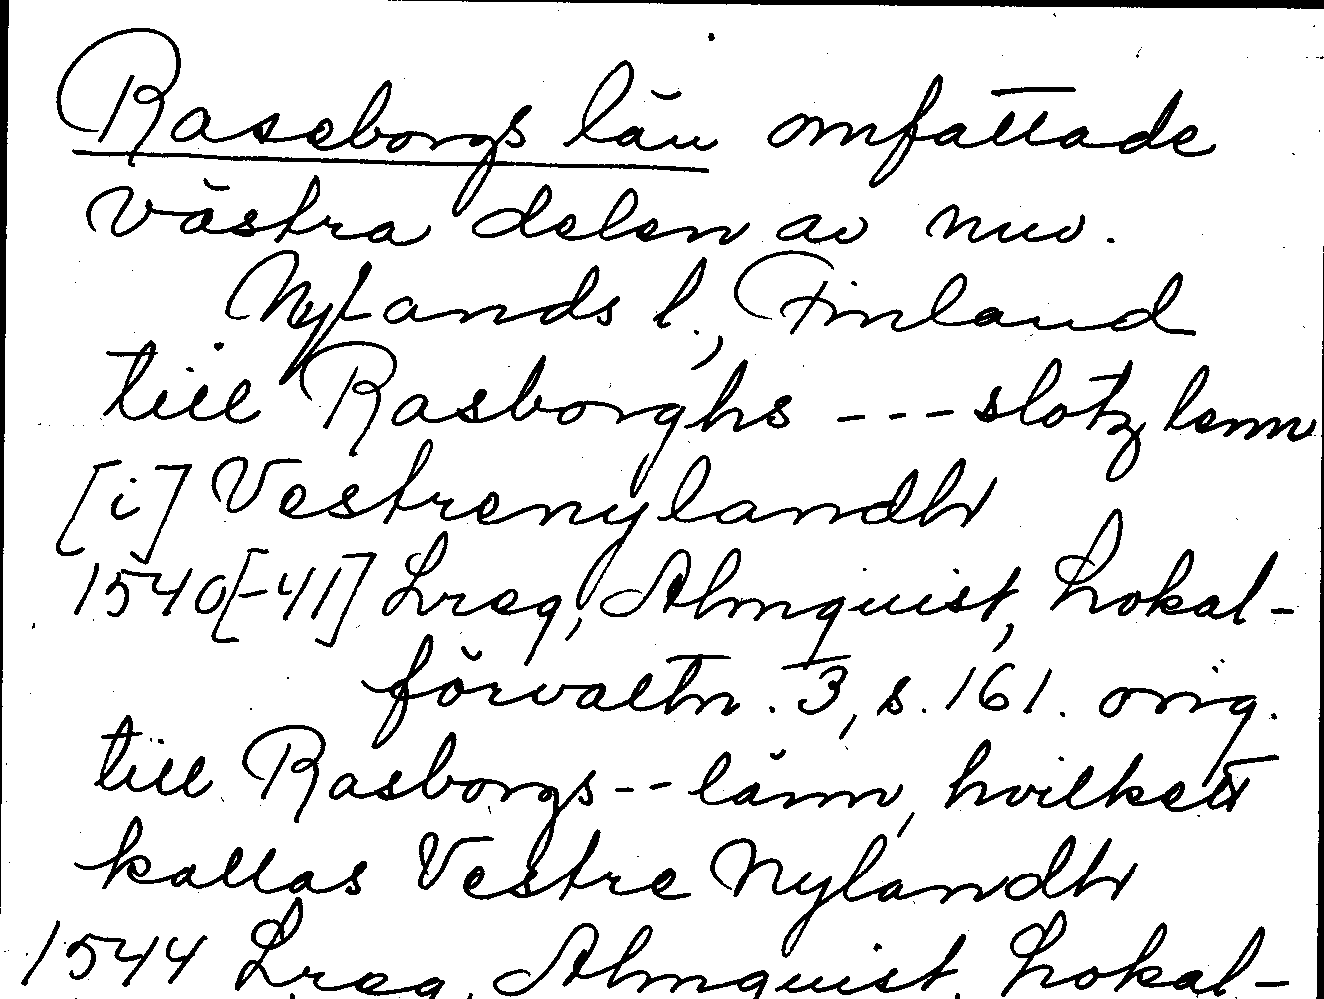 Raseborgs län omfattade
västra delen av nuv.
Nylands l., Finland
till Rasborghs --- slotz lenn
[i] Vestrenylandh
1540[-41] Lreg, Almquist, Lokal-
förvaltn. 3, s. 161. orig.
till Rasborgs -- länn, hvilkett
kallas Vestre Nylandh
1544 Lreg, Almquist, Lokal-